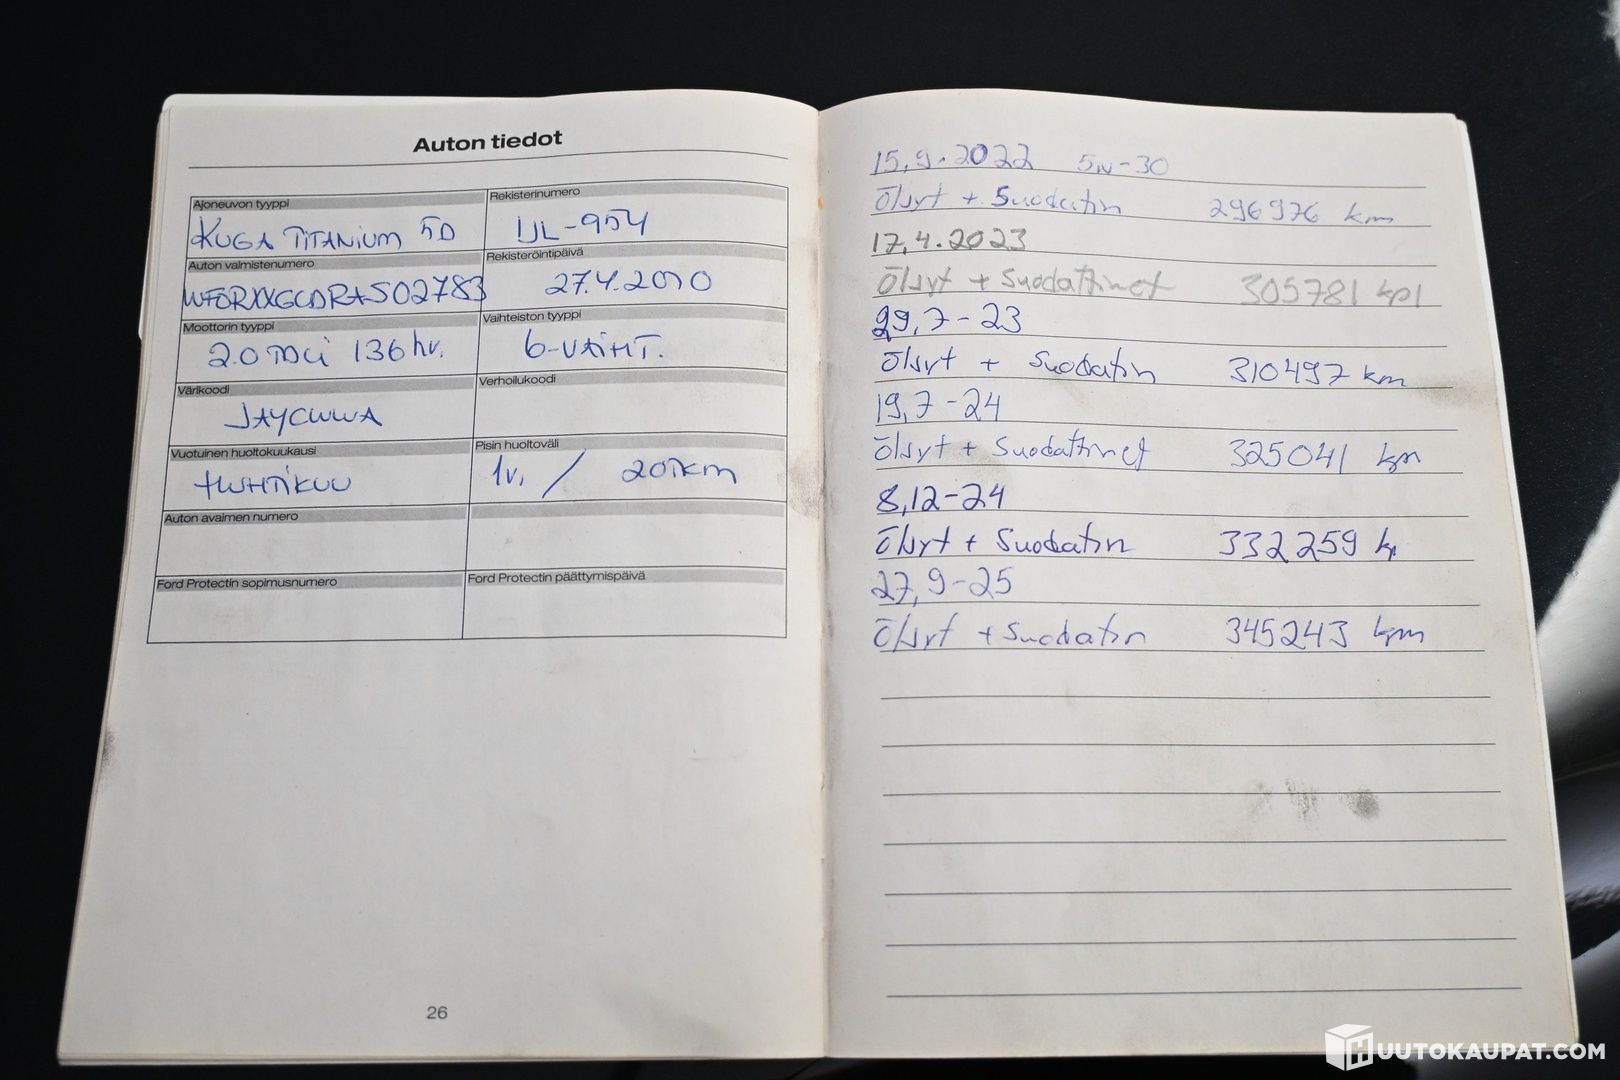 Auton tiedot
Ajoneuvon tyyppi
KUGA TITANIUM 5D
Rekisterinumero
IJL-954
Auton valmistenumero
WF0RXXGCDRAS02783
Rekisteröintipäivä
27.4.2010
Moottorin tyyppi
2.0 TDCi 136 hv.
Vaihteiston tyyppi
6-VAIHT.
Värikoodi
JAYCWWA
Verhoilukoodi
Vuotuinen huoltokuukausi
HUHTIKUU
Pisin huoltoväli
1v. / 20TKM
Auton avaimen numero
Ford Protectin sopimusnumero
Ford Protectin päättymispäivä
26
15,9.2022 5W-30
Öljyt + Suodatin 296976 km
17,4.2023
Öljyt + Suodattimet 305781 km
29,7-23
Öljyt + Suodatin 310497 km
19,7-24
Öljyt + Suodattimet 325041 km
8,12-24
Öljyt + Suodatin 332259 km
27,9-25
Öljyt + Suodatin 345243 km
HUUTOKAUPAT.COM